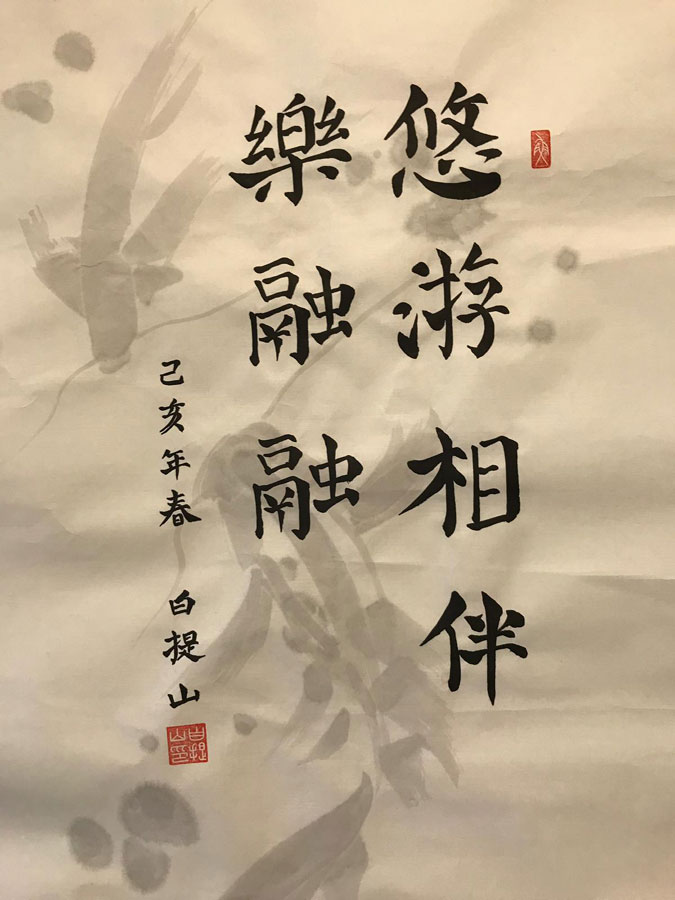 悠游相伴
樂融融
己亥年春 白提山
白提山印